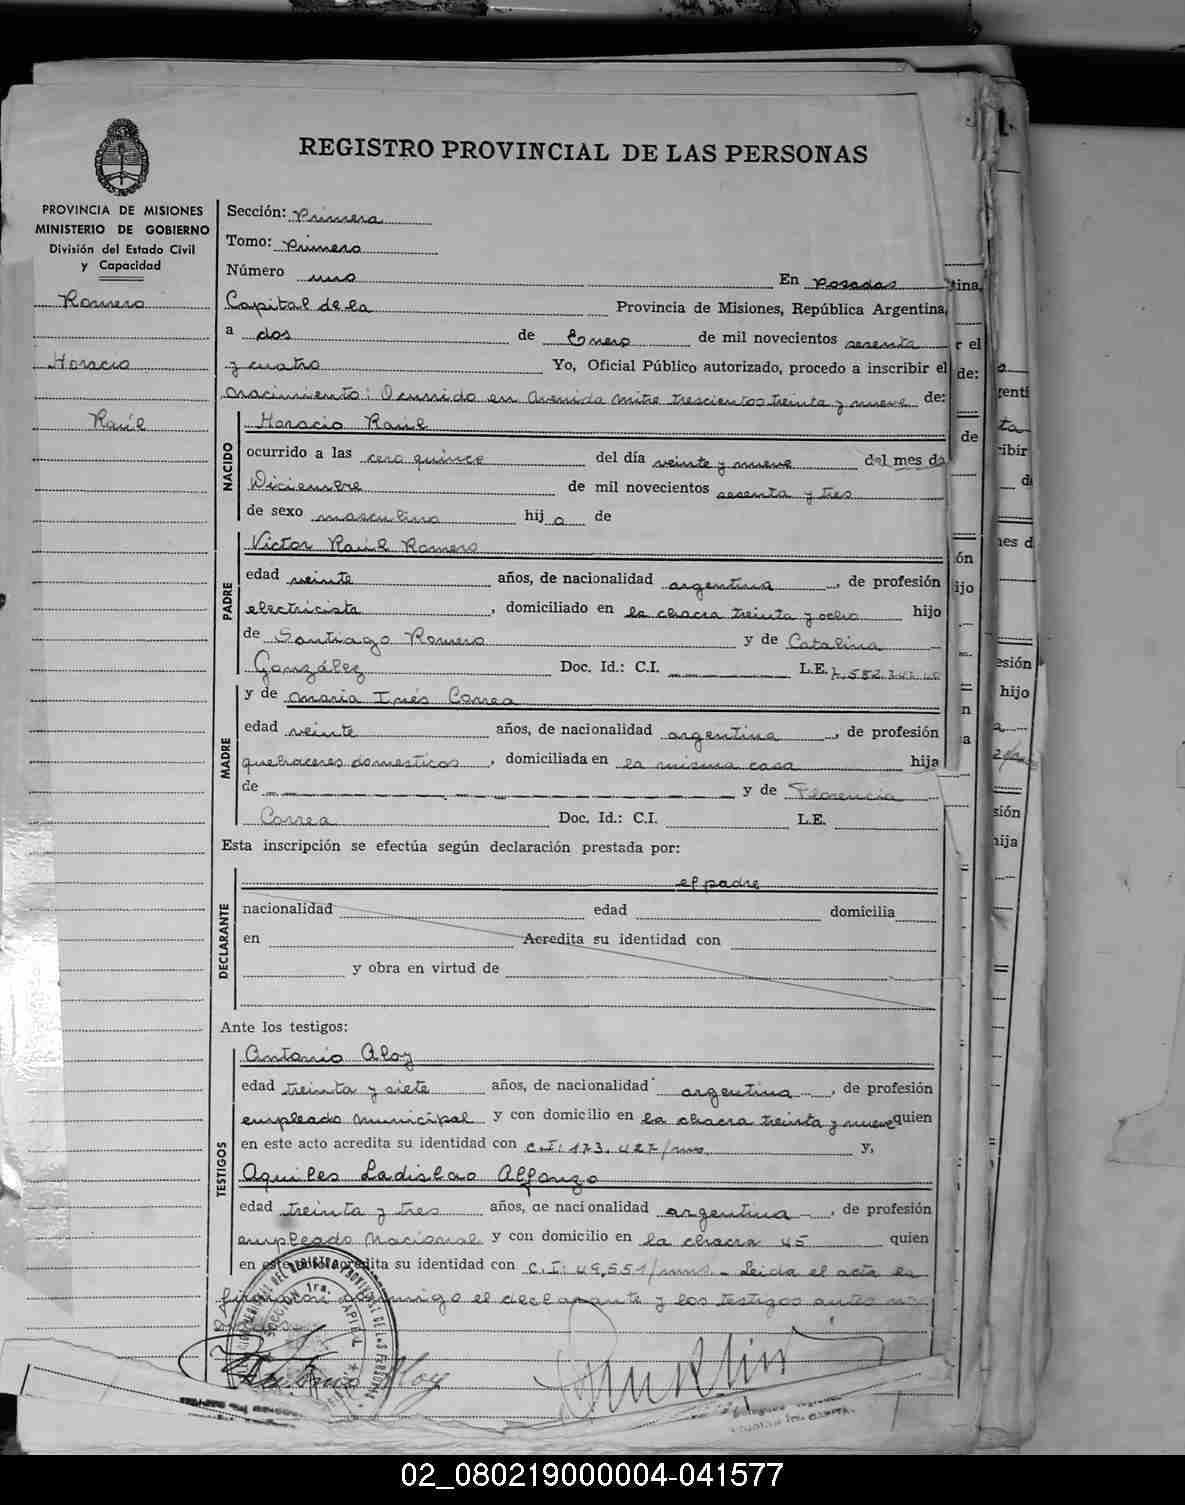 REGISTRO PROVINCIAL DE LAS PERSONAS
PROVINCIA DE MISIONES
MINISTERIO DE GOBIERNO
División del Estado Civil
y Capacidad
Romero
Horacio
Raúl
Sección: Primera
Tomo: Primero
Número uno En Posadas
Capital de la Provincia de Misiones, República Argentina,
a dos de Enero de mil novecientos sesenta
y cuatro Yo, Oficial Público autorizado, procedo a inscribir el
nacimiento: Ocurrido en Avenida Mitre trescientos treinta y nueve de:
NACIDO
Horacio Raúl
ocurrido a las cero quince del día veinte y nueve del mes de
Diciembre de mil novecientos sesenta y tres
de sexo masculino hijo de
PADRE
Victor Raúl Romero
edad veinte años, de nacionalidad argentina, de profesión
electricista, domiciliado en la chacra treinta y ocho hijo
de Santiago Romero y de Catalina
González Doc. Id.: C.I. L.E.
MADRE
y de María Inés Correa
edad veinte años, de nacionalidad argentina, de profesión
quehaceres domesticos, domiciliada en la misma casa hija
de y de Florencia
Correa Doc. Id.: C.I. L.E.
Esta inscripción se efectúa según declaración prestada por:
DECLARANTE
el padre
nacionalidad edad domicilia
en Acredita su identidad con
y obra en virtud de
Ante los testigos:
TESTIGOS
Antonio Aloy
edad treinta y siete años, de nacionalidad argentina, de profesión
empleado municipal y con domicilio en la chacra treinta y nueve quien
en este acto acredita su identidad con C.I: 173.427/mns. y,
Aquiles Ladislao Alfonzo
edad treinta y tres años, de nacionalidad argentina, de profesión
empleado Nacional y con domicilio en la chacra 45 quien
en este acto acredita su identidad con C.I: 49,551/mns. - Leida el acta la
firmaron conmigo el declarante y los testigos antes
Antonio Aloy
02_080219000004-041577